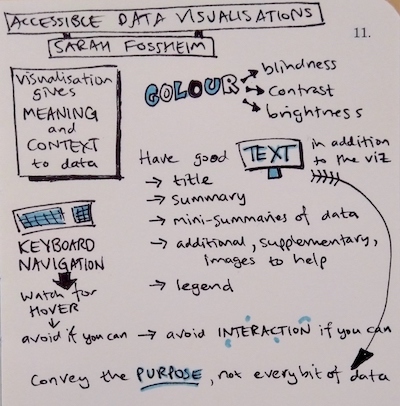 ACCESSIBLE DATA VISUALISATIONS
SARAH FOSSHEIM
11.
Visualisation
gives
MEANING
and
CONTEXT
to data
COLOUR
blindness
contrast
brightness
Have good TEXT in addition
to the viz
title
summary
mini-summaries of data
additional, supplementary,
images to help
legend
KEYBOARD
NAVIGATION
Watch for
HOVER
avoid if you can → avoid INTERACTION if you can
Convey the PURPOSE, not every bit of data